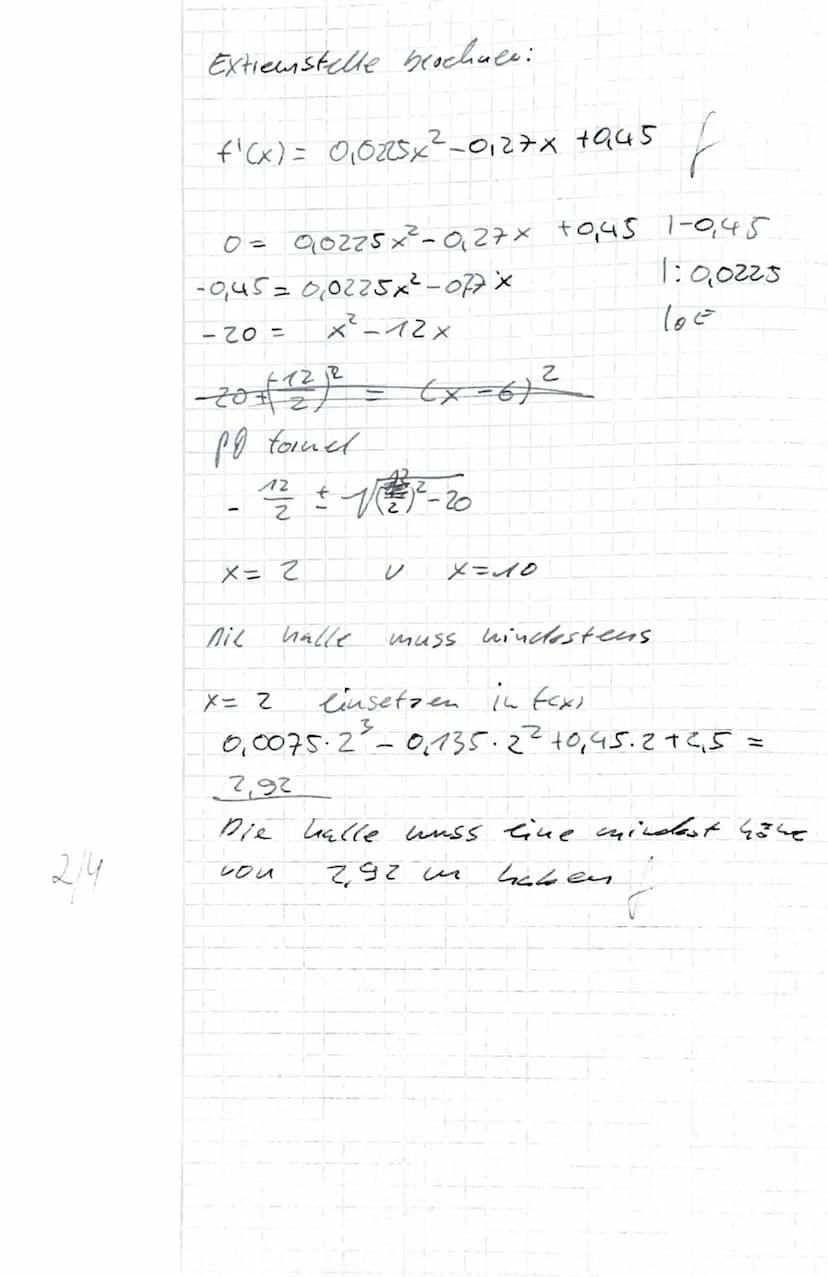 Extremstelle berechnen:
f'(x) = 0,0225x² - 0,27x + 0,45 f
0 = 0,0225x² - 0,27x + 0,45 | -0,45
-0,45 = 0,0225x² - 0,27x | : 0,0225
-20 = x² - 12x
-20 + (-12/2)² = (x - 6)²
pq formel
- 12/2 ± √((12/2)² - 20)
x = 2 v x = 10
Die halle muss mindestens
x = 2 einsetzen in f(x)
0,0075 · 2³ - 0,135 · 2² + 0,45 · 2 + 2,5 =
2,92
Die halle muss eine mindest höhe
2/4 von 2,92 m haben f